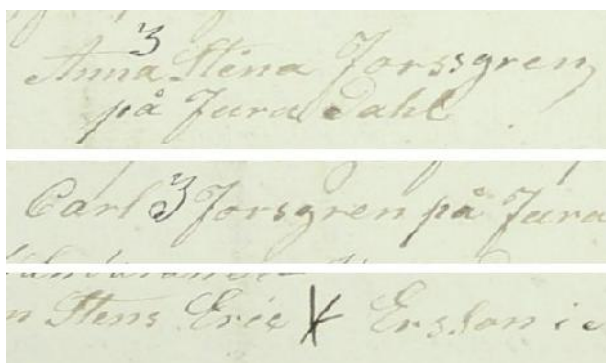 3
Anna Stina Forssgren
på Fura Dahl
Carl 3 Forsgren på Fura
n Stens Eric Ersson i